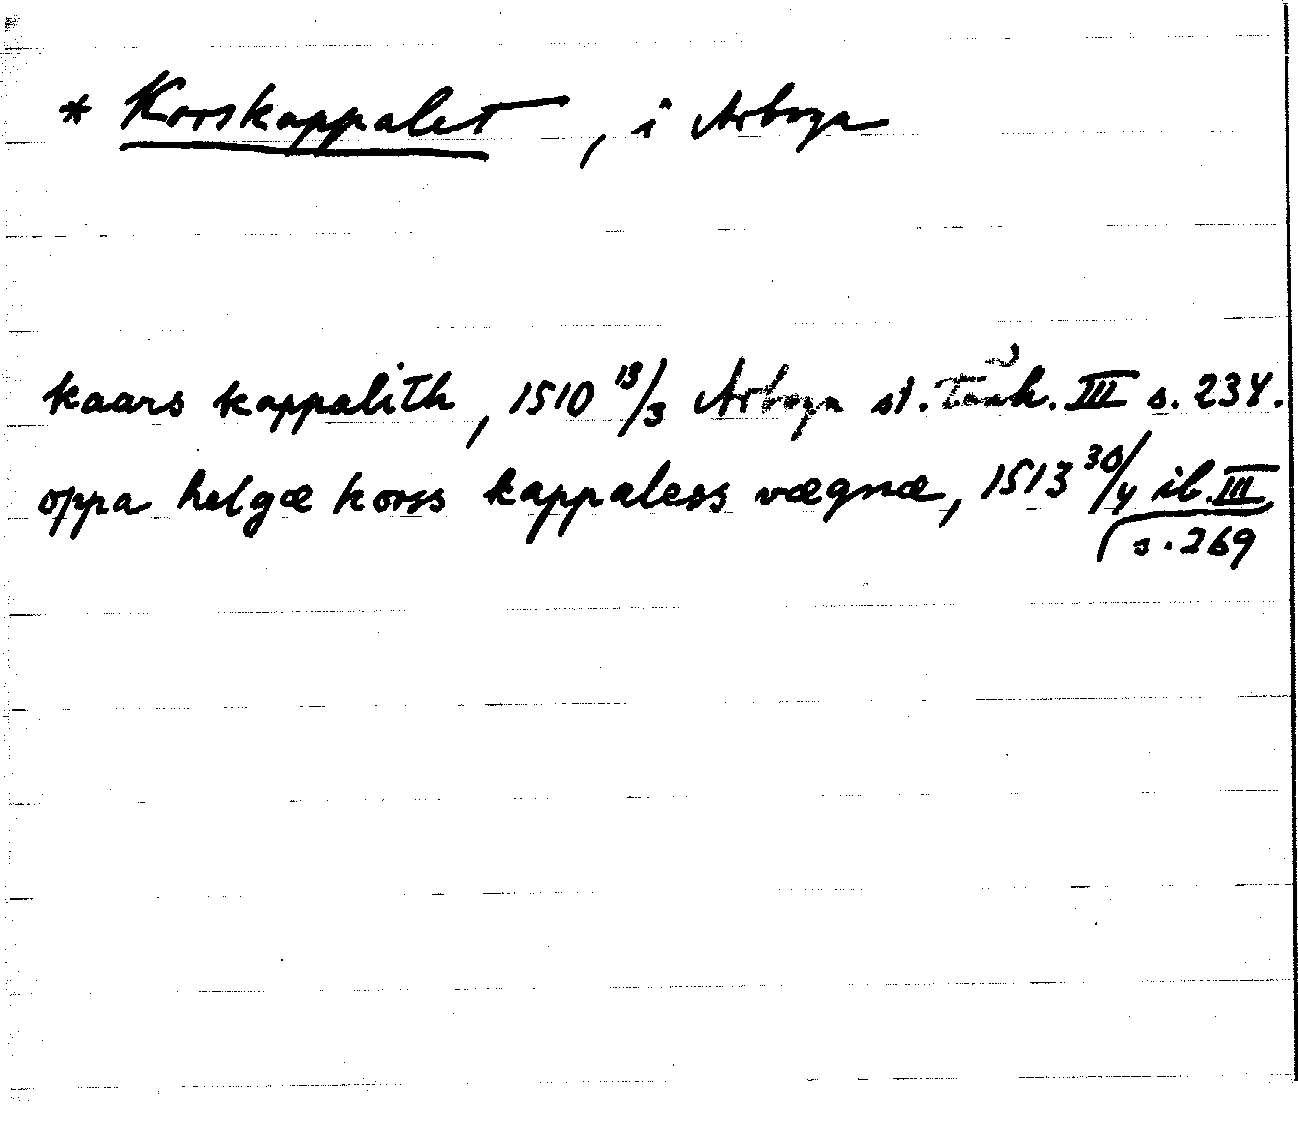 * Korskappalet, i Arboga
kaars kappalith, 1510 13/3 Arboga st. Tänkb. III s. 234.
oppa helgæ korss kappaless vægnæ, 1513 30/4 ib. III
s. 269